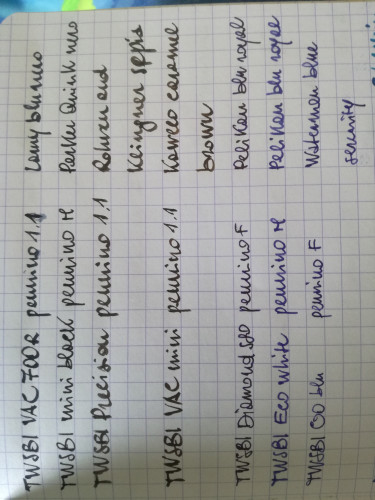 TWSBI VAC 700R pennino 1.1 Lamy blu nero
TWSBI mini black pennino M Parker Quink nero
TWSBI Precision pennino 1.1 Rohrer and
Klingner sepia
TWSBI VAC mini pennino 1.1 Kaweco caramel
brown
TWSBI Diamond 580 pennino F Pelikan blu royal
TWSBI Eco white pennino M Pelikan blu royal
TWSBI GO blu pennino F Waterman blue
serenity